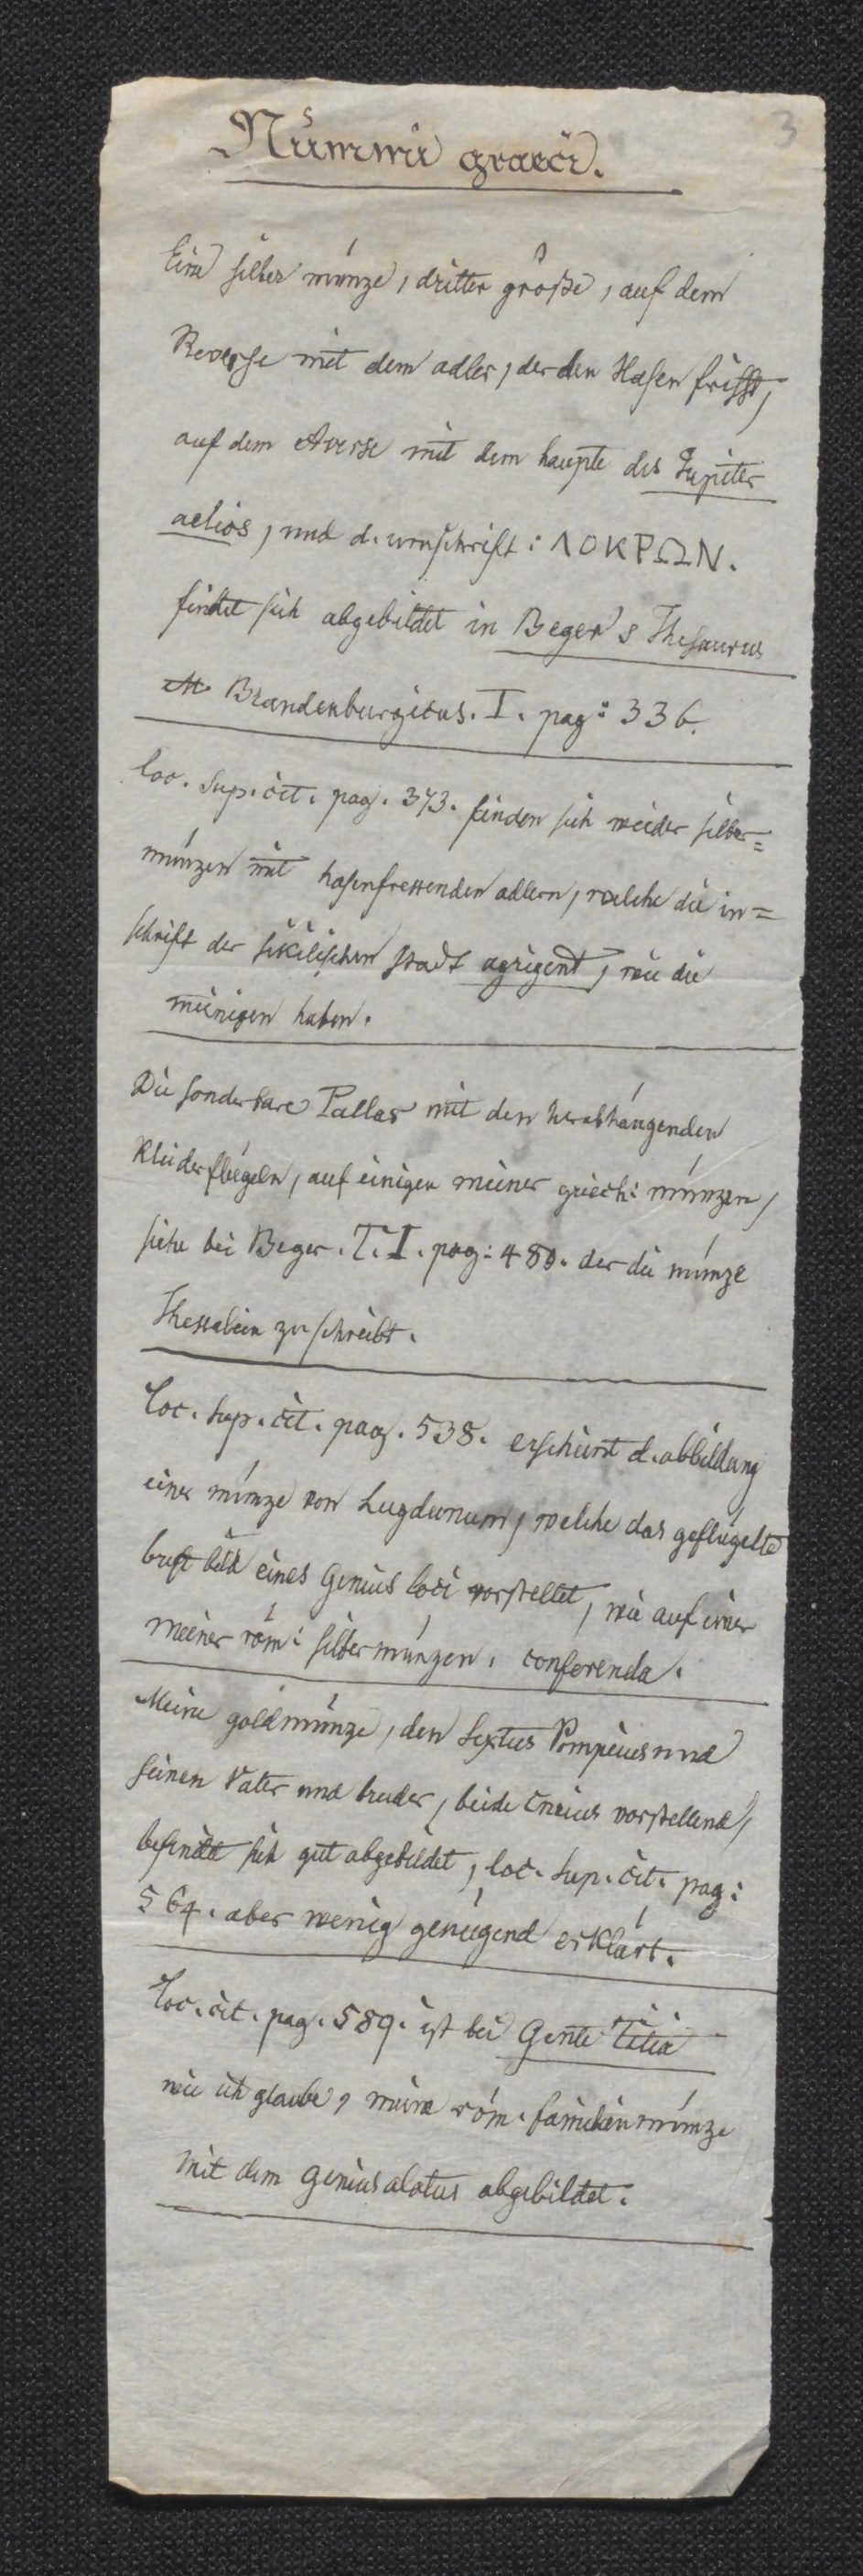 3
Nummi graeci.
Eine silber münze, dritter größe, auf dem
Reverse mit dem adler, der den Hasen frißt,
auf dem Averse mit dem haupte des Jupiter
aelios, und d. umschrift: ΛΟΚΡΩΝ.
findet sich abgebildet in Beger's Thesaurus
Brandenburgicus. I. pag: 336.
loc. sup. cit. pag. 373. finden sich wieder silber=
münzen mit hasenfressenden adlern, welche die in=
schrift der sikilischen stadt agrigent, wie die
meinigen haben.
Die sonderbare Pallas mit den herabhängenden
Kleiderflügeln, auf einigen meiner griech: münzen,
siehe bei Beger. T. I. pag: 480. der die münze
Thessalien zuschreibt.
Loc. sup. cit. pag. 538. erscheint d. abbildung
einer münze von Lugdunum, welche das geflügelte
brustbild eines Genius loci vorstellet, wie auf einer
meiner röm: silbermünzen. conferenda.
Meine goldmünze, den Sextus Pompeius und
seinen Vater und bruder, beide Cneius vorstellend,
befindet sich gut abgebildet, loc. sup. cit. pag:
564. aber wenig genügend erklärt.
Loc. cit. pag. 589. ist bei Gente Titia
wie ich glaube, meine röm. familienmünze
mit dem Genius alatus abgebildet.